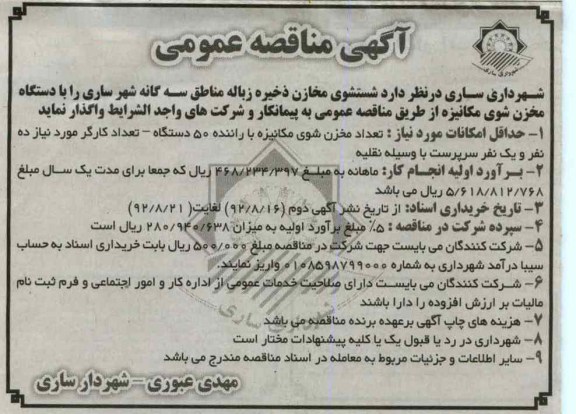 آگهی مناقصه عمومی
شهرداری ساری
شهرداری ساری درنظر دارد شستشوی مخازن ذخیره زباله مناطق سه گانه شهر ساری را با دستگاه
مخزن شوی مکانیزه از طریق مناقصه عمومی به پیمانکار و شرکت های واجد الشرایط واگذار نماید
۱- حداقل امکانات مورد نیاز : تعداد مخزن شوی مکانیزه با راننده ۵۰ دستگاه – تعداد کارگر مورد نیاز ده
نفر و یک نفر سرپرست با وسیله نقلیه
۲- بـرآورد اولیه انجـام کار: ماهانه به مبلـغ ۴۶۸/۲۳۴/۳۹۷ ریال که جمعا برای مدت یک سـال مبلغ
۵/۶۱۸/۸۱۲/۷۶۸ ریال می باشد
۳- تاریخ خریداری اسناد: از تاریخ نشر آگهی دوم (۹۲/۸/۱۶) لغایت( ۹۲/۸/۲۱)
۴- سپرده شرکت در مناقصه : ۵٪ مبلغ برآورد اولیه به میزان ۲۸۰/۹۴۰/۶۳۸ ریال است
۵- شرکت کنندگان می بایست جهت شرکت در مناقصه مبلغ ۵۰۰/۰۰۰ ریال بابت خریداری اسناد به حساب
سیبا درآمد شهرداری به شماره ۰۱۰۸۵۹۸۷۹۹۰۰۰ واریز نمایند.
۶- شـرکت کنندگان می بایسـت دارای صلاحیت خدمات عمومی از اداره کار و امور اجتماعی و فرم ثبت نام
مالیات بر ارزش افزوده را دارا باشند
۷- هزینه های چاپ آگهی برعهده برنده مناقصه می باشد
۸- شهرداری در رد یا قبول یک یا کلیه پیشنهادات مختار است
۹- سایر اطلاعات و جزئیات مربوط به معامله در اسناد مناقصه مندرج می باشد
مهدی عبوری – شهردار ساری